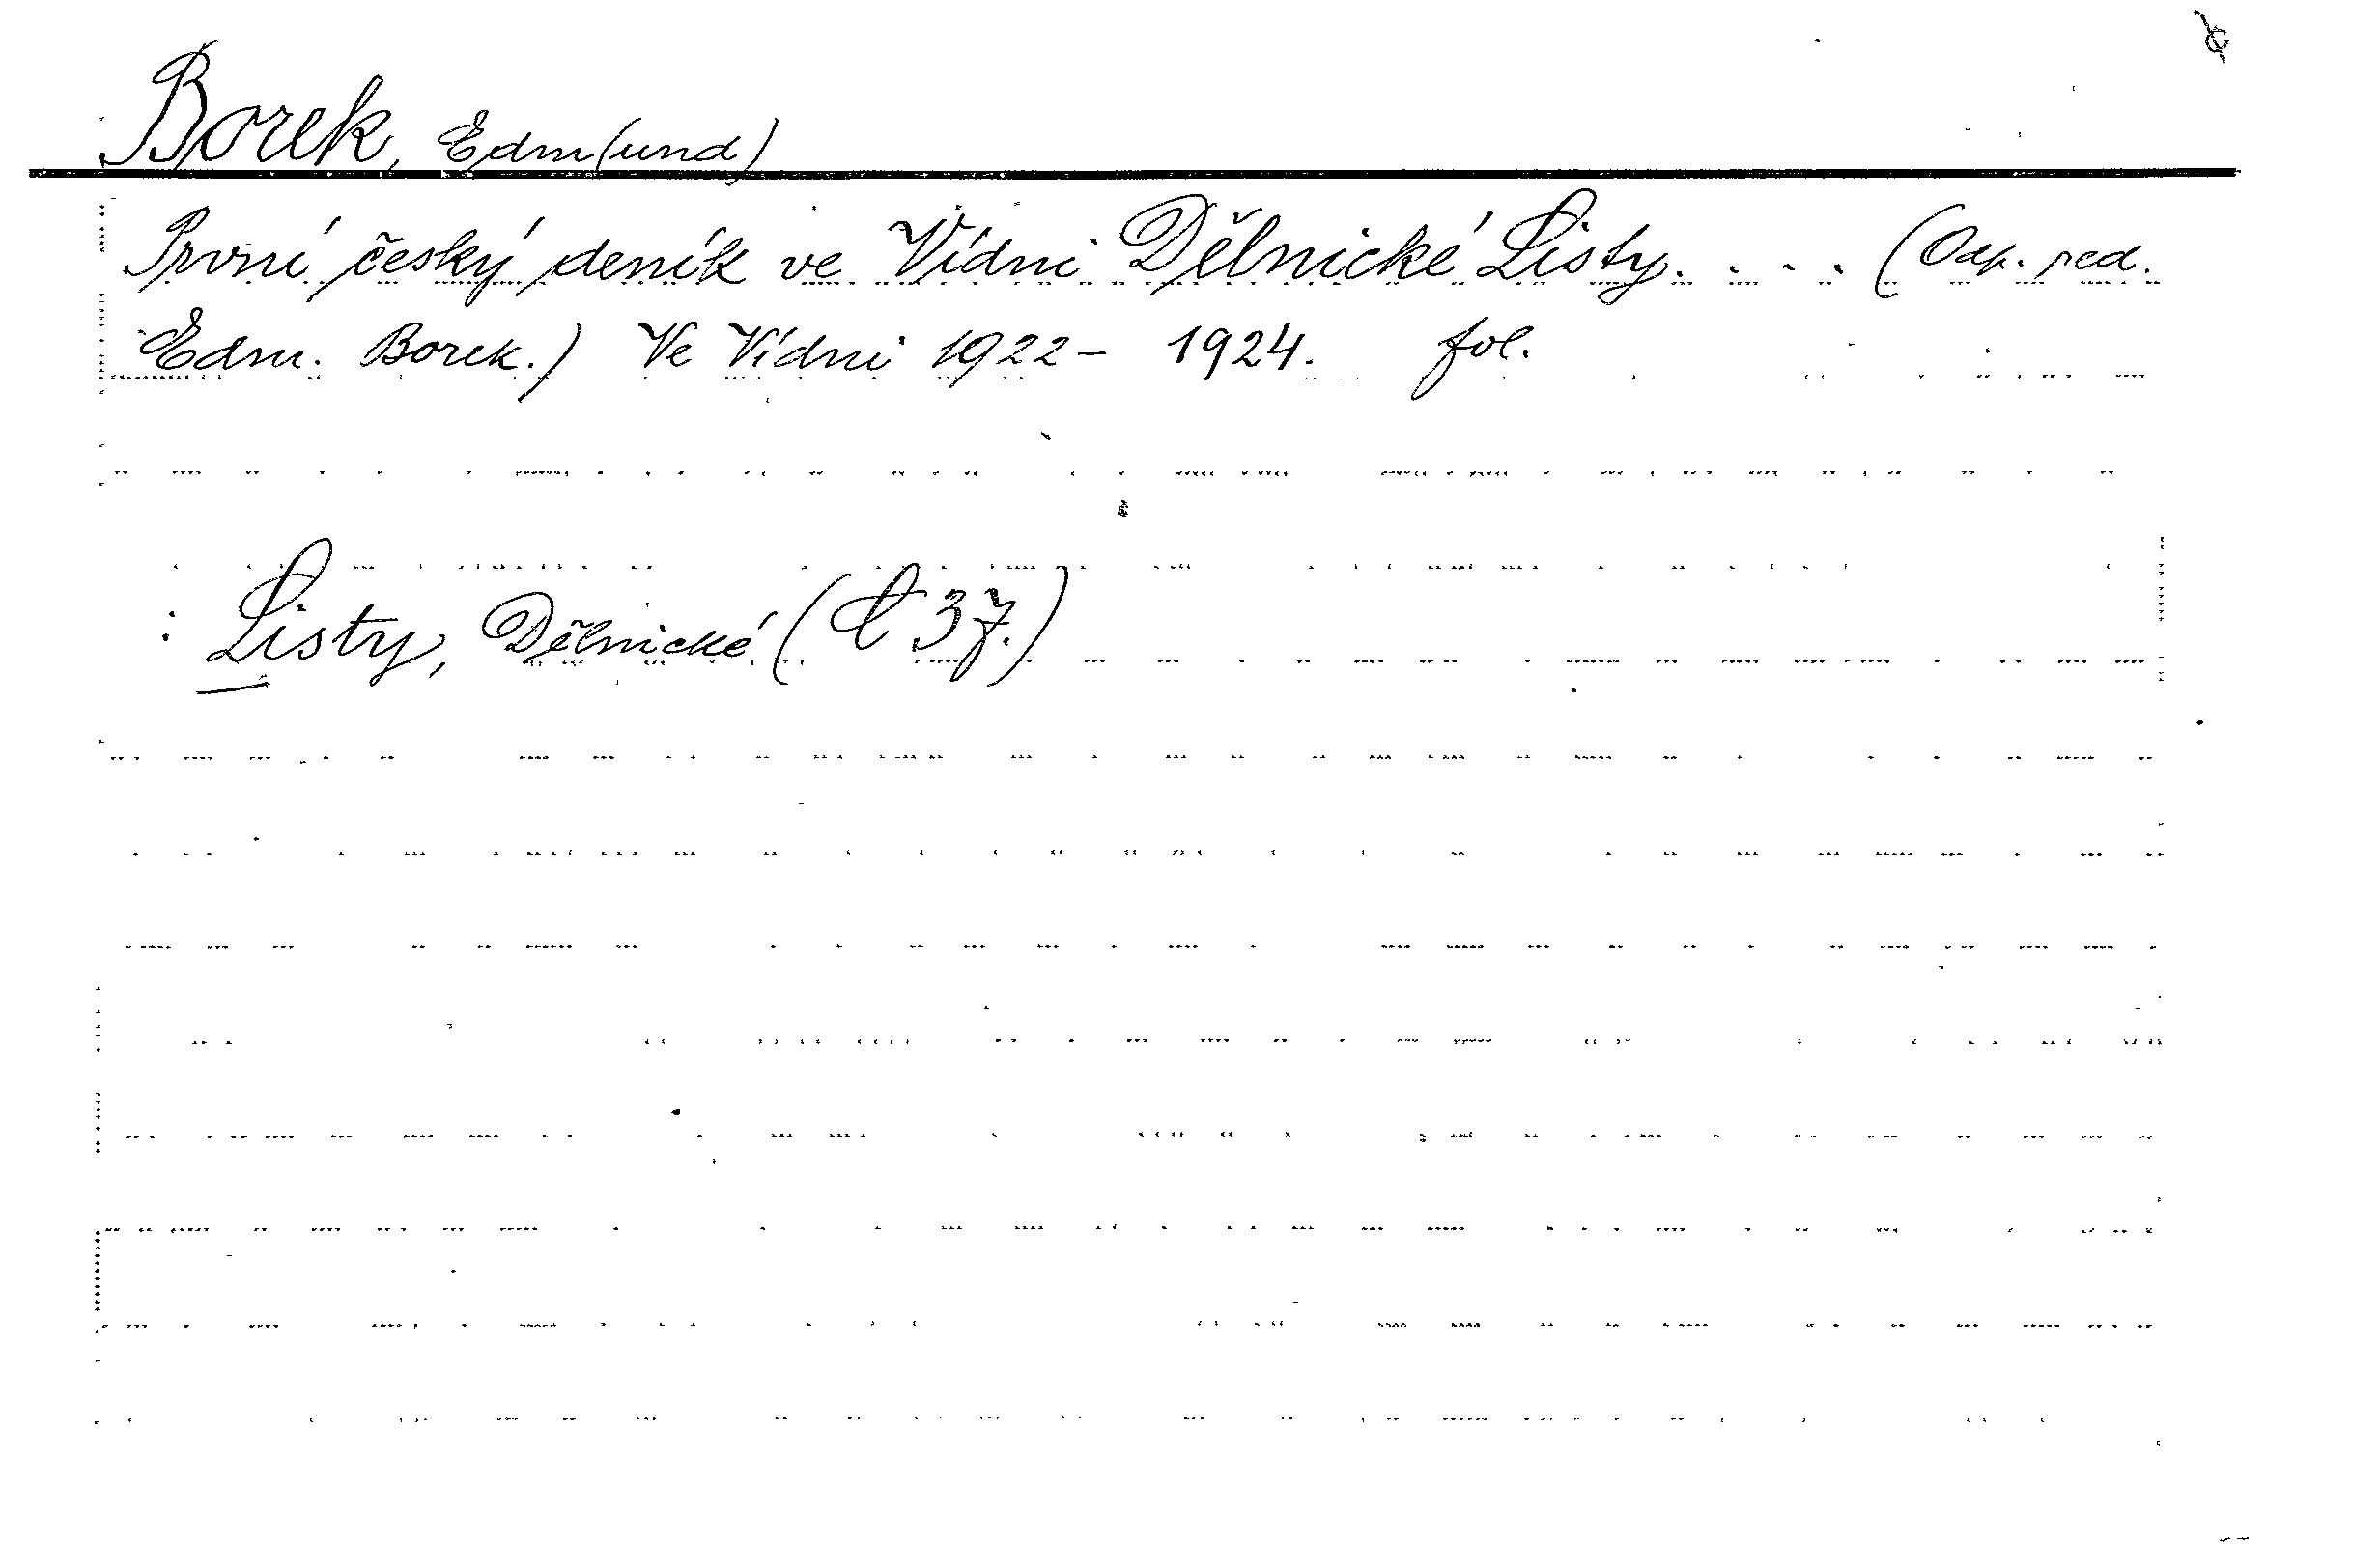 Borek, Edm(und)
První český deník ve Vídni Dělnické Listy. . . . (Odp. red.
Edm. Borek.) Ve Vídni 1922 - 1924. fol.
: Listy, Dělnické (C 37.)